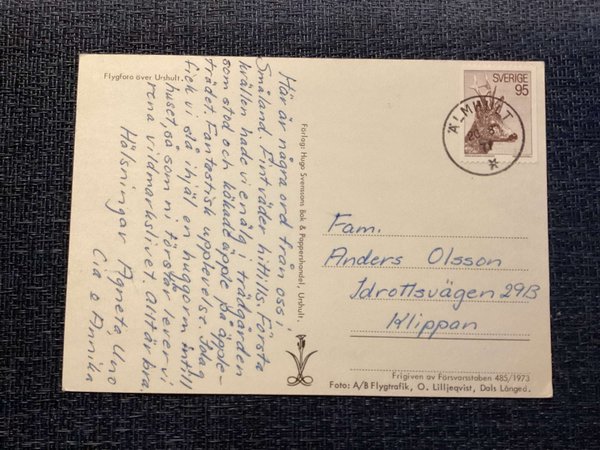 Flygfoto över Urshult.
Här är några ord från oss i
Småland. Fint väder hittills. Första
kvällen hade vi en älg i trädgården
som stod och käkade äpple på äpple-
trädet. Fantastisk upplevelse. Idag
fick vi slå ihjäl en huggorm intill
huset, så som ni förstår lever vi
rena vildmarkslivet. Allt är bra.
Hälsningar Agneta Uno
Cia o Annika
Förlag: Hugo Svenssons Bok & Pappershandel, Urshult.
SVERIGE
95
ÄLMHULT
Fam.
Anders Olsson
Idrottsvägen 29B
Klippan
Frigiven av Försvarsstaben 485/1973
Foto: A/B Flygtrafik, O. Lilljeqvist, Dals Långed.